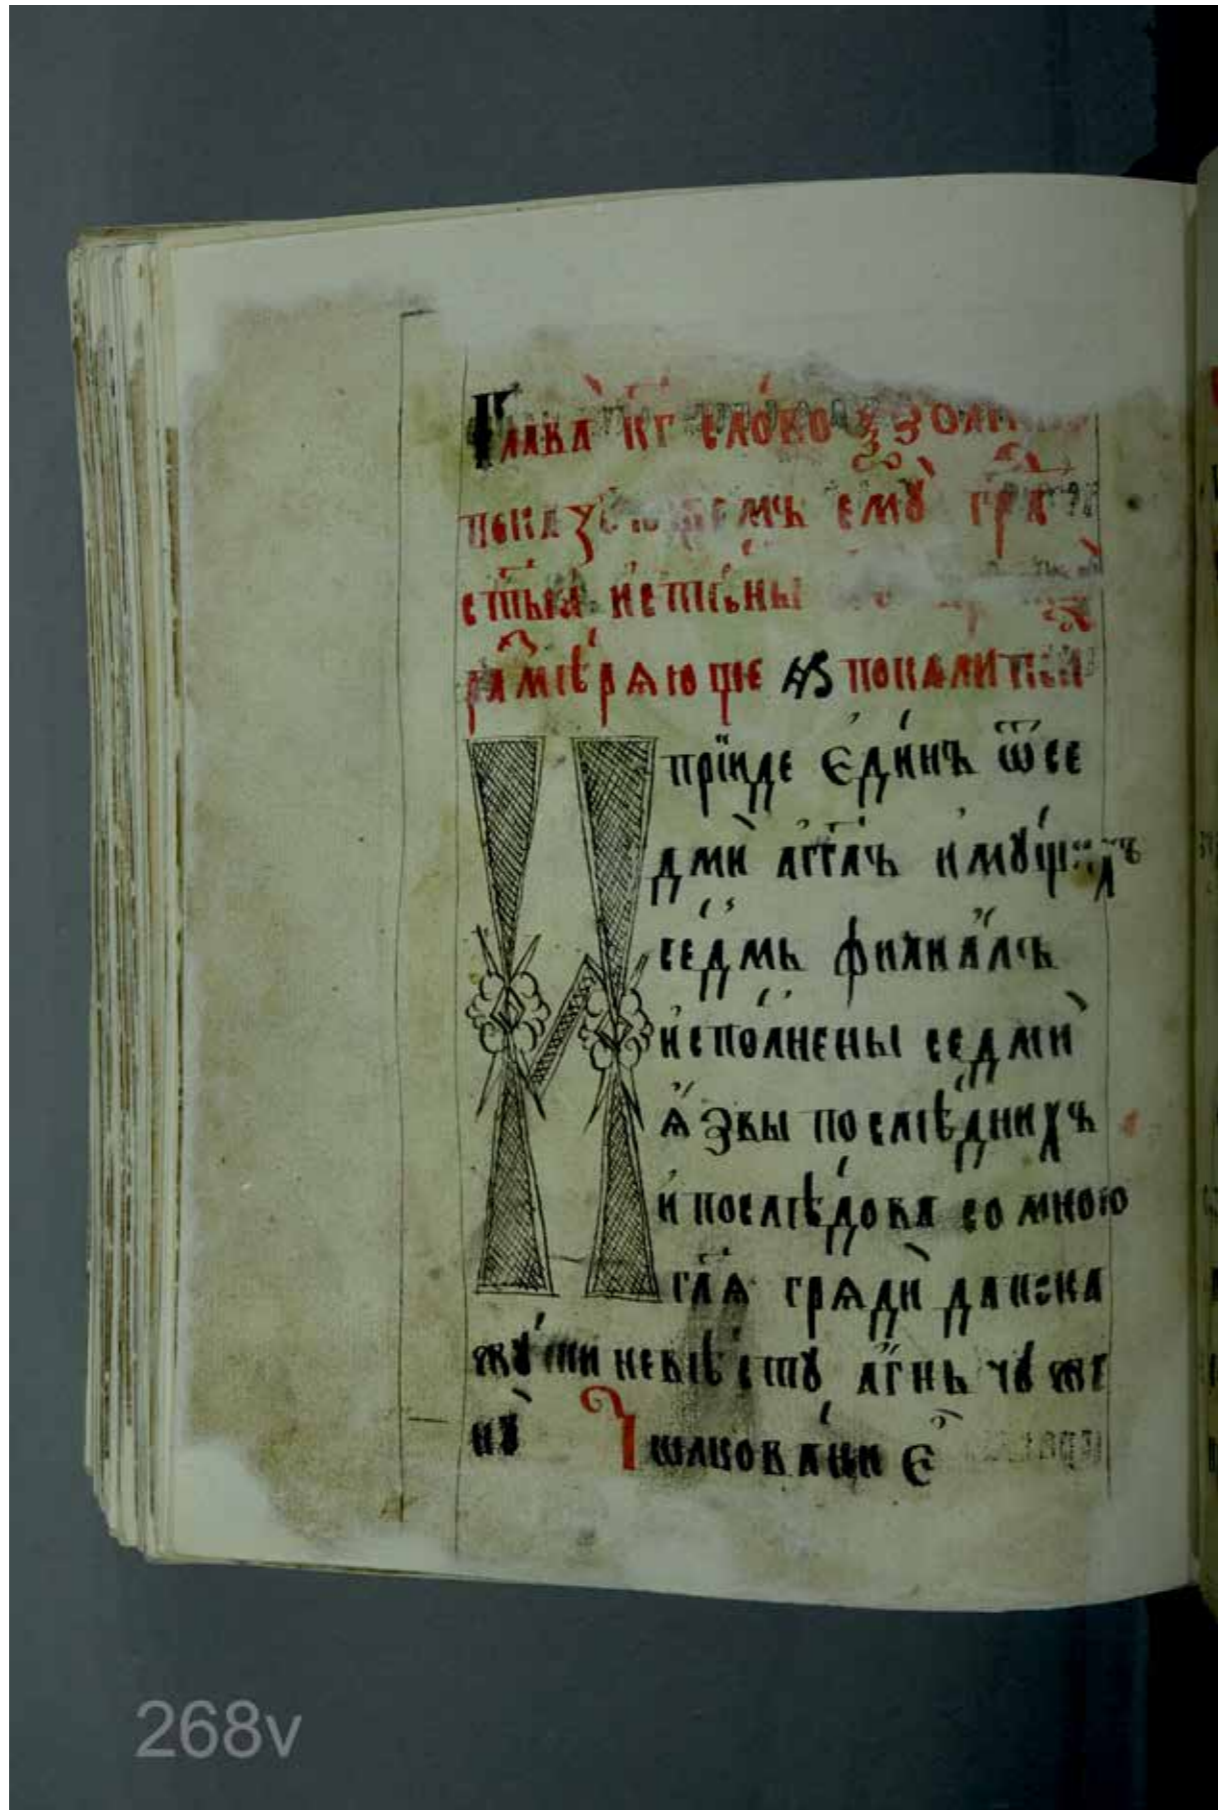 Глава к҃г слово ѯз
показꙋ емꙋ̀
стыѧ истины
размѣрѧюще апокалипсіи
И прїиде єдинъ ѿ се
дми аг҃глъ имꙋщихъ
седмь фиѧиалъ
исполнены седми
ꙗзвы послѣднихъ
и послѣдова со мною
гл҃ѧ грѧди да пока
жꙋ ти невѣсту агнь чꙋ же
нꙋ̀ Тшлкованиє
268v